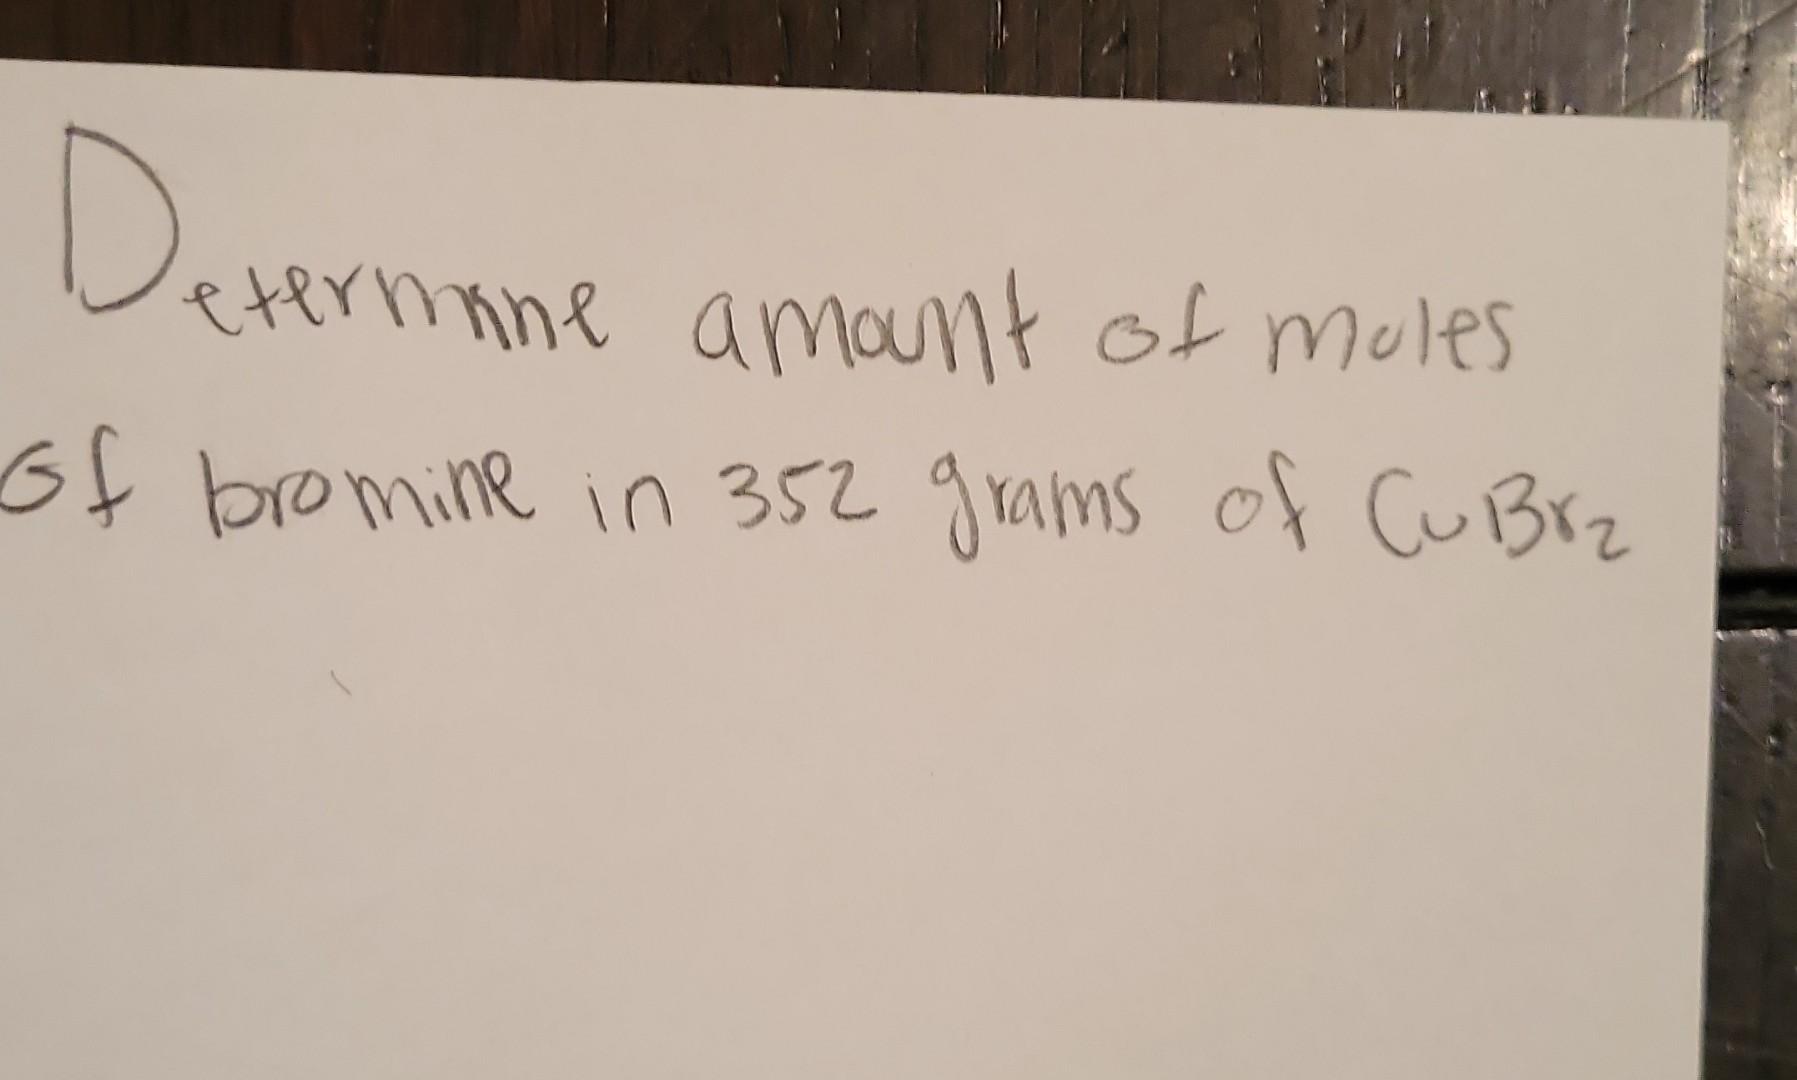 Determine amount of moles
of bromine in 352 grams of CuBr₂